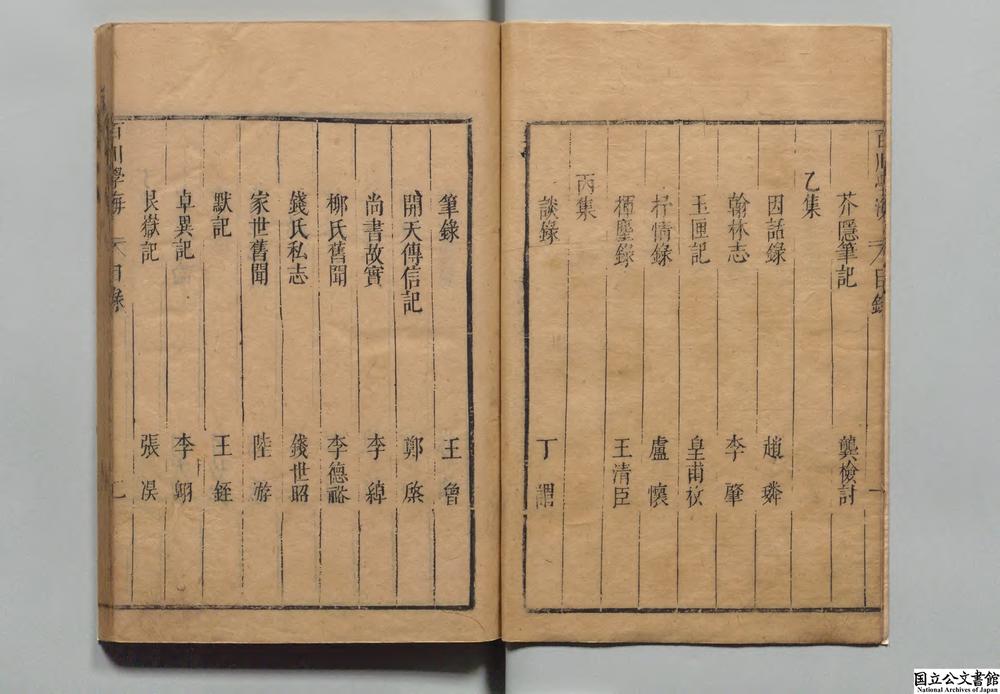 百川學海 目錄 一
芥隱筆記 龔檢討
乙集
因話錄 趙璘
翰林志 李肇
玉匣記 皇甫枚
抒情錄 盧懷
揮麈錄 王清臣
丙集
談錄 丁謂
筆錄 王曾
開天傳信記 鄭棨
尚書故實 李綽
柳氏舊聞 李德裕
錢氏私志 錢世昭
家世舊聞 陸游
默記 王銍
卓異記 李翱
艮嶽記 張淏
百川學海 目錄 二
国立公文書館
National Archives of Japan